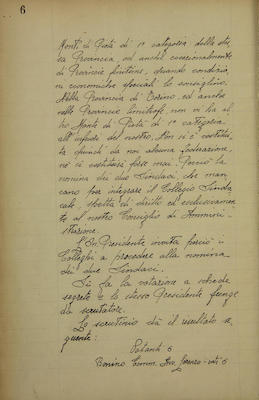 6
Monti di Pietà di 1ª categoria della stes
sa Provincia, od anche eccezionalmente
di Provincie finitime, quando condizio
ni economiche speciali lo consiglino.
Nella Provincia di Torino ed anche
nelle Provincie limitrofe non vi ha al
tro Monte di Pietà di 1ª categoria
all'infuori del nostro. Non si è costitui
ta quindi da noi alcuna federazione
nè si costituirà forse mai. Perciò la
nomina dei due Sindaci, che man
cano per integrare il Collegio Sinda
cale, spetta di diritto ed esclusivamen
te al nostro Consiglio di Ammini-
strazione.
L'On. Presidente invita perciò i
Colleghi a procedere alla nomina
dei due Sindaci.
Si fa la votazione a schede
segrete e lo stesso Presidente funge
da scrutatore.
Lo scrutinio dà il risultato se
guente:
Votanti 6
Bonino Comm. Avv. Lorenzo - voti 6